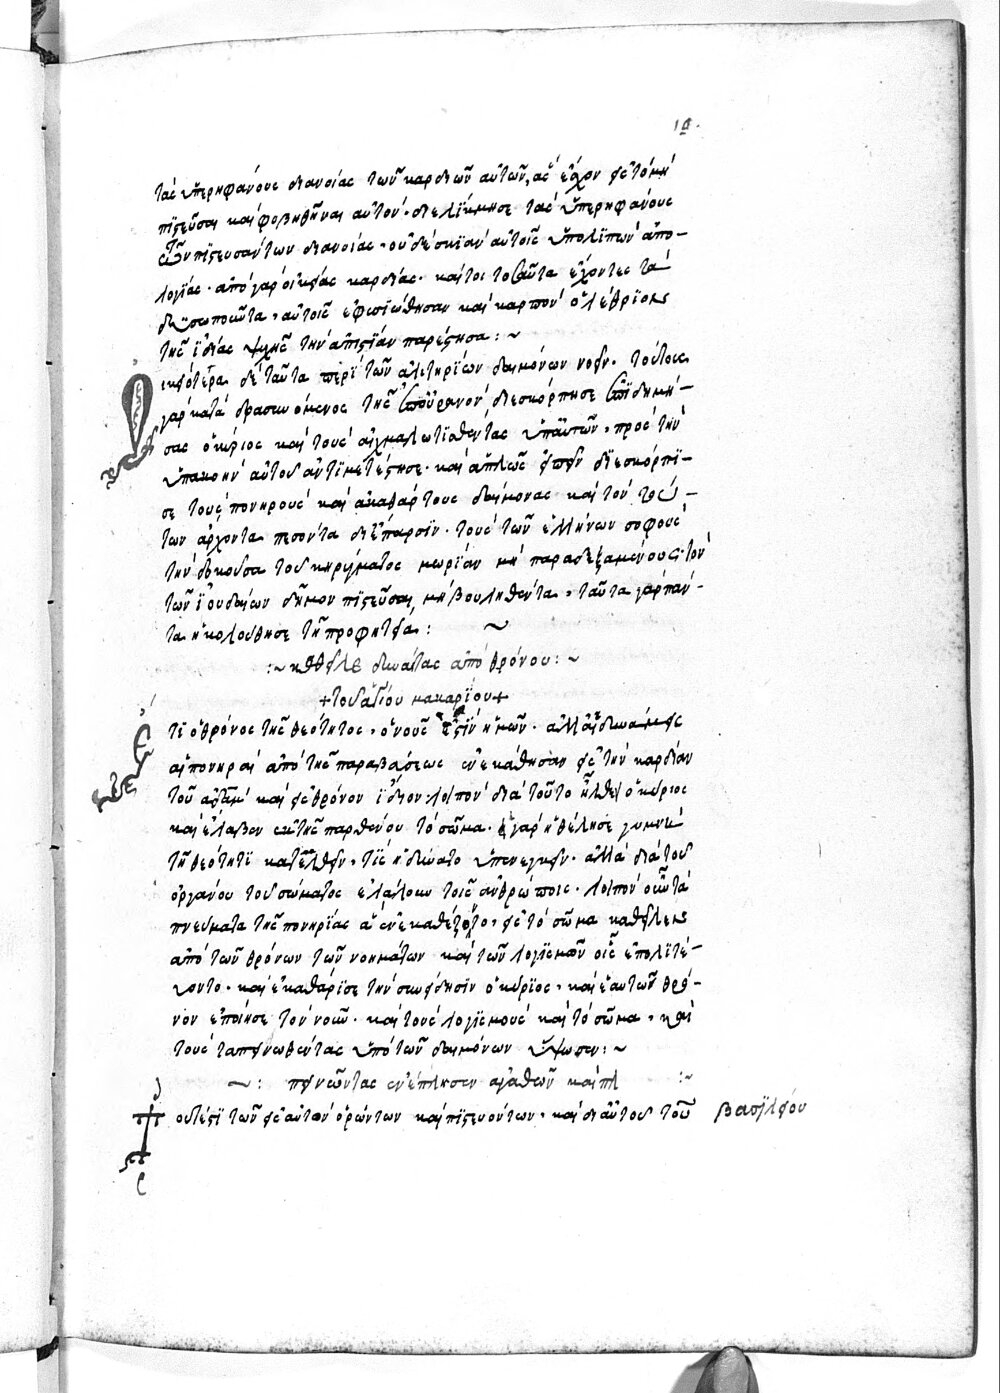 19.
τὰς ὑπερηφάνους διανοίας τῶν καρδιῶν αὐτῶν, ἃς εἶχον εἰς τὸ μὴ
πιστεῦσαι καὶ φοβηθῆναι αὐτόν· διελίκμησε τὰς ὑπερηφάνους
τῶν πιστευσάντων διανοίας· οὐδὲ σκιὰν αὐτοῖς ὑπολιπὼν ἀπο-
λογίας· ἀπὸ γὰρ οἰκείας καρδίας· καίτοι τοσαῦτα ἔχοντες τὰ
δυσωποῦντα, αὐτοῖς ἐφυσιώθησαν καὶ καρπὸν ὀλέθριον
τῆς ἰδίας ψυχῆς τὴν ἀπιστίαν παρέστησα: ~
κυριώτερα δὲ ταῦτα περὶ τῶν ἀλιτηρίων δαιμόνων νοεῖν. τούτους
γὰρ κατα δρασσωόμενος τῆς ὑπ' οὐρανὸν διεσκόρπησε ἐπιδημή-
σας ὁ κύριος καὶ τοὺς αἰχμαλωτισθέντας ὑπ' αὐτῶν, πρὸς τὴν
ὑπακοὴν αὐτοῦ ἀντιμετέστησε· καὶ ἁπλῶς εἰπεῖν διεσκόρπι-
σε τοὺς πονηροὺς καὶ ἀκαθάρτους δαίμονας καὶ τὸν τού-
των ἄρχοντα πεσόντα δι' ἔπαρσιν· τοὺς τῶν ἑλλήνων σοφοὺς
τὴν δοκοῦσα τοῦ κηρύγματος μωρίαν μὴ παραδεξαμένους· τὸν
τῶν ἰουδαίων δῆμον πιστεῦσαι, μὴ βουληθέντα, ταῦτα γὰρ πάν-
τα ἠκολούθησε τῇ προφητεία: ~
:~ καθεῖλε δυνάστας ἀπὸ θρόνου: ~
+ τοῦ ἁγίου μακαρίου +
τι ὁ θρόνος τῆς θεότητος, ὁ νοῦς ἐστὶν ἡμῶν· ἀλλ' αἱ δυνάμεις
αἱ πονηραὶ ἀπὸ τῆς παραβάσεως ἐνεκάθησαν εἰς τὴν καρδίαν
τοῦ ἀδὰμ καὶ εἰς θρόνον ἴδιον· λοιπὸν διὰ τοῦτο ἦλθεν ὁ κύριος
καὶ ἔλαβεν ἐκ τῆς παρθένου τὸ σῶμα· εἰ γὰρ ἠθέλησε γυμνῇ
τῇ θεότητι κατελθεῖν, τίς ἠδύνατο ὑπενεγκεῖν· ἀλλὰ διὰ τοῦ
ὀργάνου τοῦ σώματος ἐλάλησε τοῖς ἀνθρώποις· λοιπὸν οὖν τὰ
πνεύματα τῆς πονηρίας ἃ ἐνεκαθέζετο, εἰς τὸ σῶμα καθεῖλεν
ἀπὸ τῶν θρόνων τῶν νοημάτων καὶ τῶν λογισμῶν οἷς ἐπολιτεύ-
οντο· καὶ ἐκαθάρισε τὴν συνείδησιν ὁ κύριος, καὶ ἑαυτῶ θρό-
νον ἐποίησε τὸν νοῦν· καὶ τοὺς λογισμοὺς καὶ τὸ σῶμα, καὶ
τοὺς ταπεινωθέντας ὑπὸ τῶν δαιμόνων ὕψωσεν: ~
~: πεινῶντας ἐνέπλησεν ἀγαθῶν καὶ πλ :~
ουτέστι τῶν εἰς αὐτὸν ὁρώντων καὶ πιστευόντων, καὶ δι' αὐτοῦ τοῦ
βασιλείου